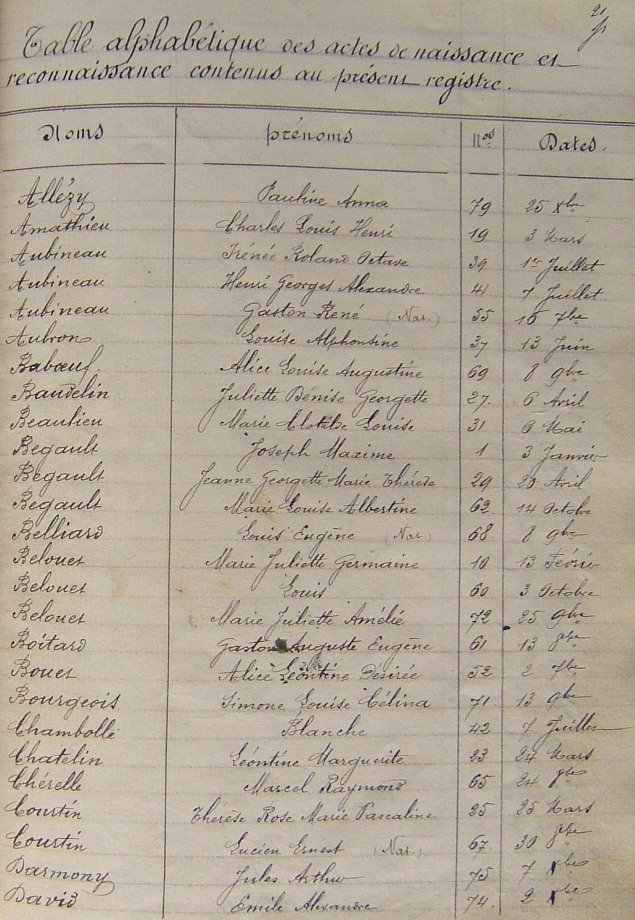 21
Table alphabétique des actes de naissance et
reconnaissance contenus au présent registre.
Noms prénoms Nos Dates.
Allézy Pauline Anna 79 25 Xbre
Amathieu Charles Louis Henri 19 3 Mars
Aubineau Irénée Roland Octave 39 1er Juillet
Aubineau Henri Georges Alexandre 41 7 Juillet
Aubineau Gaston René (Nar.) 55 16 7bre
Aubron Louise Alphontine 37 13 Juin
Babœuf. Alice Louise Augustine 69 8 9bre
Baudelin Juliette Denise Georgette 27. 6 Avril
Beaulieu Marie Clotilde Louise 31 6 Mai
Begault Joseph Maxime 1 3 Janvier
Begault Jeanne Georgette Marie Thérèse 29 20 Avril
Begault Marie Louise Albertine 62 14 Octobre
Belliard Louis Eugène (Nar.) 68. 8 9bre
Belouet Marie Juliette Germaine 10 13 Février
Belouet Louis 60 3 Octobre
Belouet Marie Juliette Amélie 72 25 9bre
Boitard Gaston Auguste Eugène 61 13 8bre
Bouet Alice Léontine Désirée 52 2 7bre
Bourgeois Simone Louise Célina 71 13 9bre
Chambolle Blanche 42 7 Juillet
Chatelin Léontine Marguerite 23 24 Mars
Chérelle Marcel Raymond 65 24
Courtin Thérèse Rose Marie Pascaline 25 25 Mars
Courtin Lucien Ernest (Nar.) 67. 30 8bre
Darmony Jules Arthur 75 7 Xbre
David Emile Alexandre 74. 2 Xbre